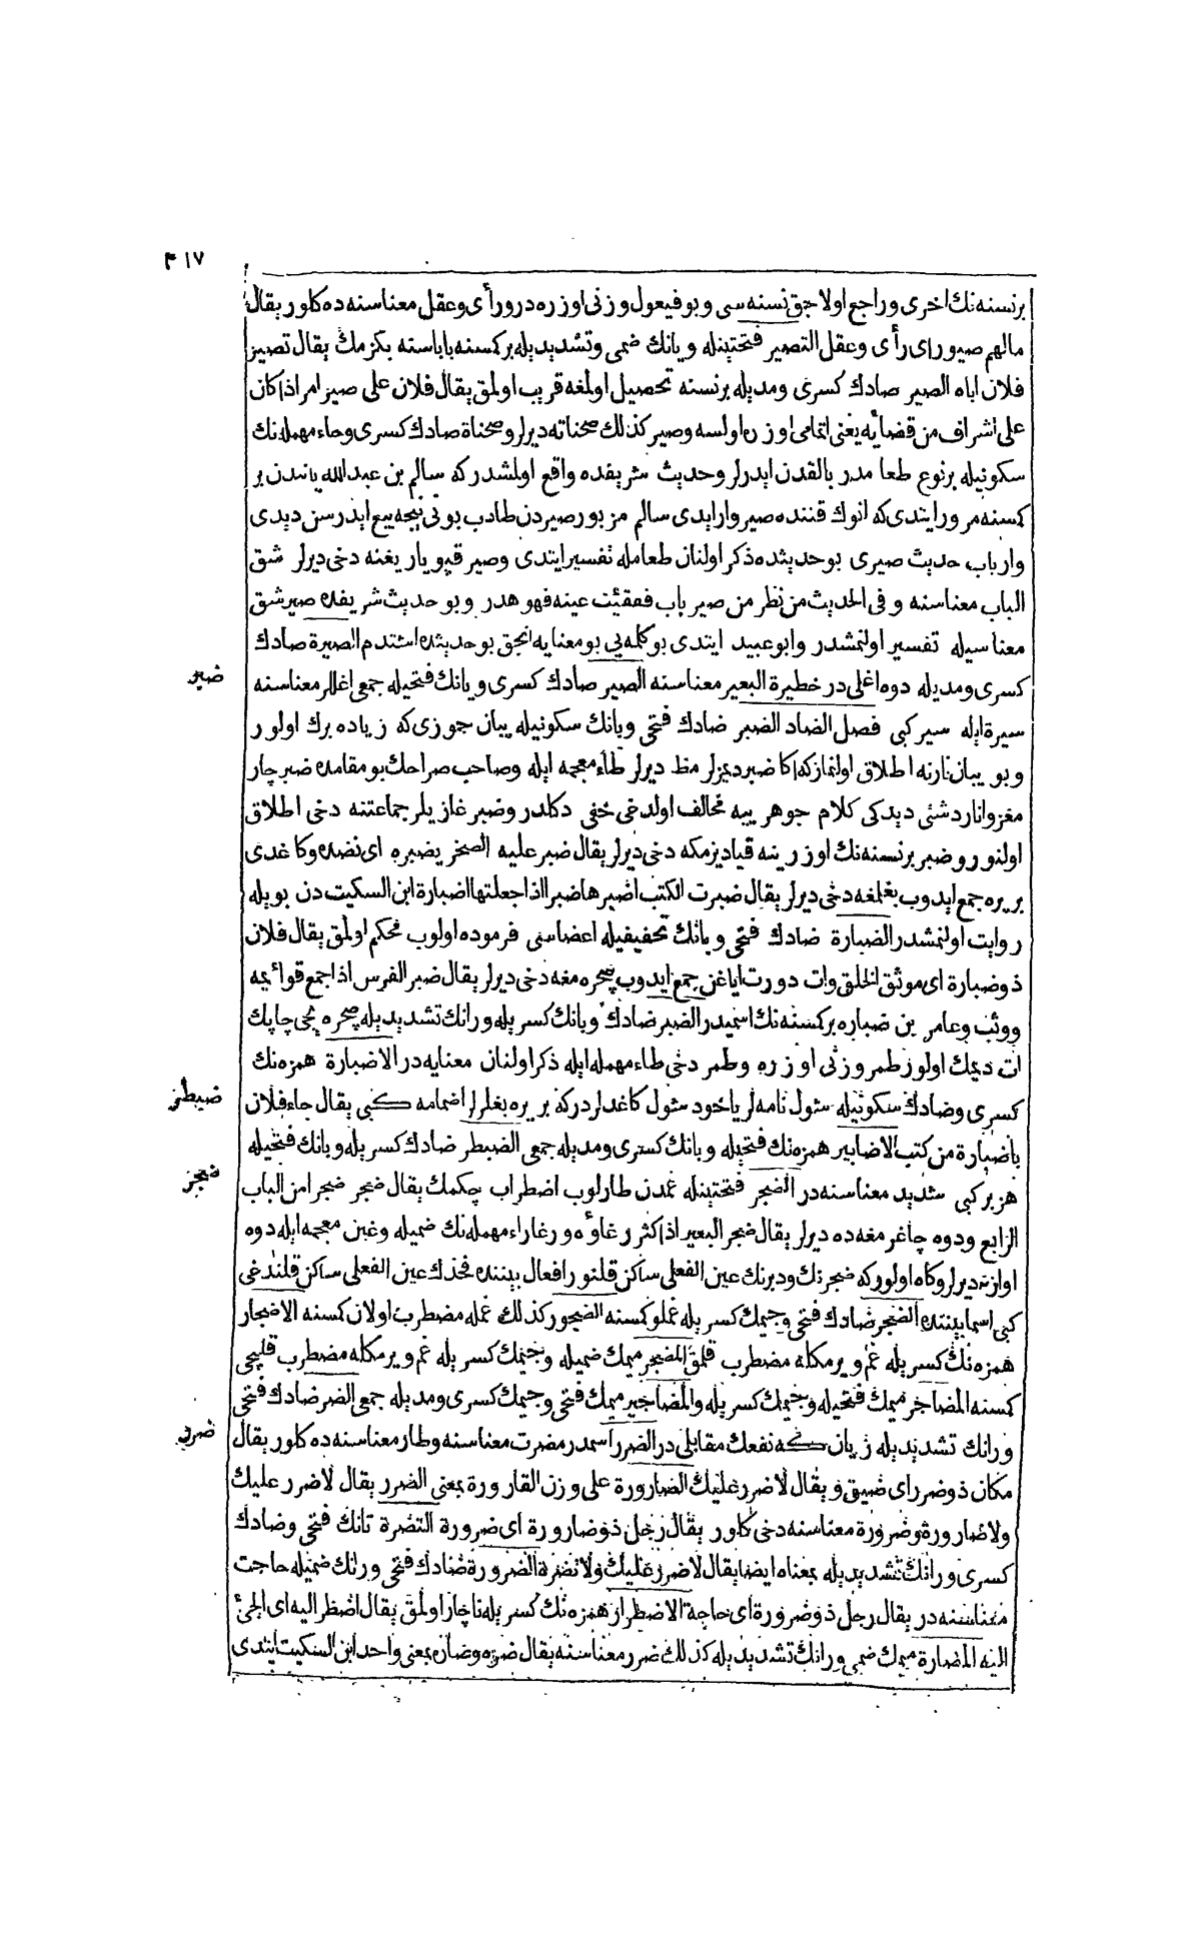 ٤١٧
برنسنه نك اخرى وراجع اولاجق نسنه سى وبو فيعول وزنى اوزره درورأى وعقل معناسنه ده كلور يقال
مالهم صيور اى رأى وعقل التصير فتحتينله ويانك ضمى وتشديديله بركسنه باباسنه بكزمك يقال تصير
فلان اباه الصير صادك كسرى ومديله برنسنه تحصيل اولمغه قريب اولمق يقال فلان على صير امر اذا كان
على اشراف من قضائه يعنى اتمامى اوزره اولسه وصير كذلك صحناته ديرلر وصحناة صادك كسرى وحاء مهمله نك
سكونيله برنوع طعامدر بالقدن ايدرلر وحديث شريفده واقع اولمشدر كه سالم بن عبدالله ياندن بر
كسنه مرور ايتدى كه انوك قتنده صير وار ايدى سالم مزبور صيردن طادب بونى نيجه بيع ايدرسن ديدى
وارباب حديث صيرى بو حديثده ذكر اولنان طعامله تفسير ايتدى وصير قپو ياريغنه دخى ديرلر شق
الباب معناسنه وفى الحديث من نظر من صير باب ففقئت عينه فهو هدر وبو حديث شريفده صير شق
معناسيله تفسير اولنمشدر وابو عبيد ايتدى بو كلمه يى بو معنايه انجق بو حديثده اشتدم الصيرة صادك
كسرى ومديله دوه اغلى در خطيرة البعير معناسنه الصير صادك كسرى ويانك فتحيله جمعى اغللر معناسنه
ضبر
سيرة ايله سير كبى فصل الضاد الضبر ضادك فتحى وبانك سكونيله يبان جوزى كه زياده برك اولور
وبو يبان نارنه اطلاق اولنمازكه اكا ضبر ديمزلر مظ ديرلر ظاء معجمه ايله وصاحب صراحك بو مقامده ضبر چار
مغز وانار دشتى ديدكى كلام جوهرىيه مخالف اولدغى خفى دكلدر وضبر غازيلر جماعتنه دخى اطلاق
اولنور وضبر برنسنه نك اوزرينه قيا ديزمكه دخى ديرلر يقال ضبر عليه الصخر يضبره اى نضده وكاغدى
بر يره جمع ايدوب بغلمغه دخى ديرلر يقال ضبرت الكتب اضبرها ضبرا اذا جعلتها اضبارة ابن السكيت دن بويله
روايت اولنمشدر الضبارة ضادك فتحى وبانك تخفيفيله اعضاسى فرموده اولوب محكم اولمق يقال فلان
ذو ضبارة اى موثق الخلق وات دورت اياغن جمع ايدوب صچره مغه دخى ديرلر يقال ضبر الفرس اذا جمع قوائمه
ووثب وعامر بن ضباره بركسنه نك اسميدر الضبر ضادك وبانك كسريله ورانك تشديديله صچره يجى چاپك
ات ديمك اولور طمر وزنى اوزره وطمر دخى طاء مهمله ايله ذكر اولنان معنايه در الاضبارة همزه نك
كسرى وضادك سكونيله شول نامه لر ياخود شول كاغدلردر كه بر يره بغلرلر اضمامه كبى يقال جاء فلان
ضبطر
باضبارة من كتب الاضابير همزه نك فتحيله وبانك كسرى ومديله جمعى الضبطر ضادك كسريله وبانك فتحيله
هزبر كبى شديد معناسنه در الضجر فتحتينله غمدن طارلوب اضطراب چكمك يقال ضجر ضجرا من الباب
ضجر
الرابع ودوه چاغرمغه ده ديرلر يقال ضجر البعير اذا كثر رغاؤه ورغا راء مهمله نك ضميله وغين معجمه ايله دوه
اوازنه ديرلر وكاه اولور كه ضجرنك ودبرنك عين الفعلى ساكن قلنور افعال بيننده فخذك عين الفعلى ساكن قلندغى
كبى اسما بيننده الضجر ضادك فتحى وجيمك كسريله غملو كسنه الضجور كذلك غمله مضطرب اولان كسنه الاضجار
همزه نك كسريله غم ويرمكله مضطرب قلمق المضجر ميمك ضميله وجيمك كسريله غم ويرمكله مضطرب قليجى
كسنه المضاجر ميمك فتحيله وجيمك كسريله والمضاجير ميمك فتحى وجيمك كسرى ومديله جمعى الضر ضادك فتحى
ضرر
ورانك تشديديله زيان كه نفعك مقابلى در الضرر اسمدر مضرت معناسنه وطار معناسنه ده كلور يقال
مكان ذو ضرر اى ضيق ويقال لا ضرر عليك الضارورة على وزن القارورة بمعنى الضرر يقال لا ضرر عليك
ولا ضارورة وضرورة معناسنه دخى كلور يقال رجل ذو ضارورة اى ضرورة التضرة تانك فتحى وضادك
كسرى ورانك تشديديله بمعناه ايضا يقال لا ضرر عليك ولا تضرة الضرورة ضادك فتحى ورانك ضميله حاجت
معناسنه در يقال رجل ذو ضرورة اى حاجة الاضطرار همزه نك كسريله ناچار اولمق يقال اضطر اليه اى الجئ
اليه المضارة ميمك ضمى ورانك تشديديله كذلك ضرر معناسنه يقال ضره وضاره بمعنى واحد ابن السكيت ايتدى